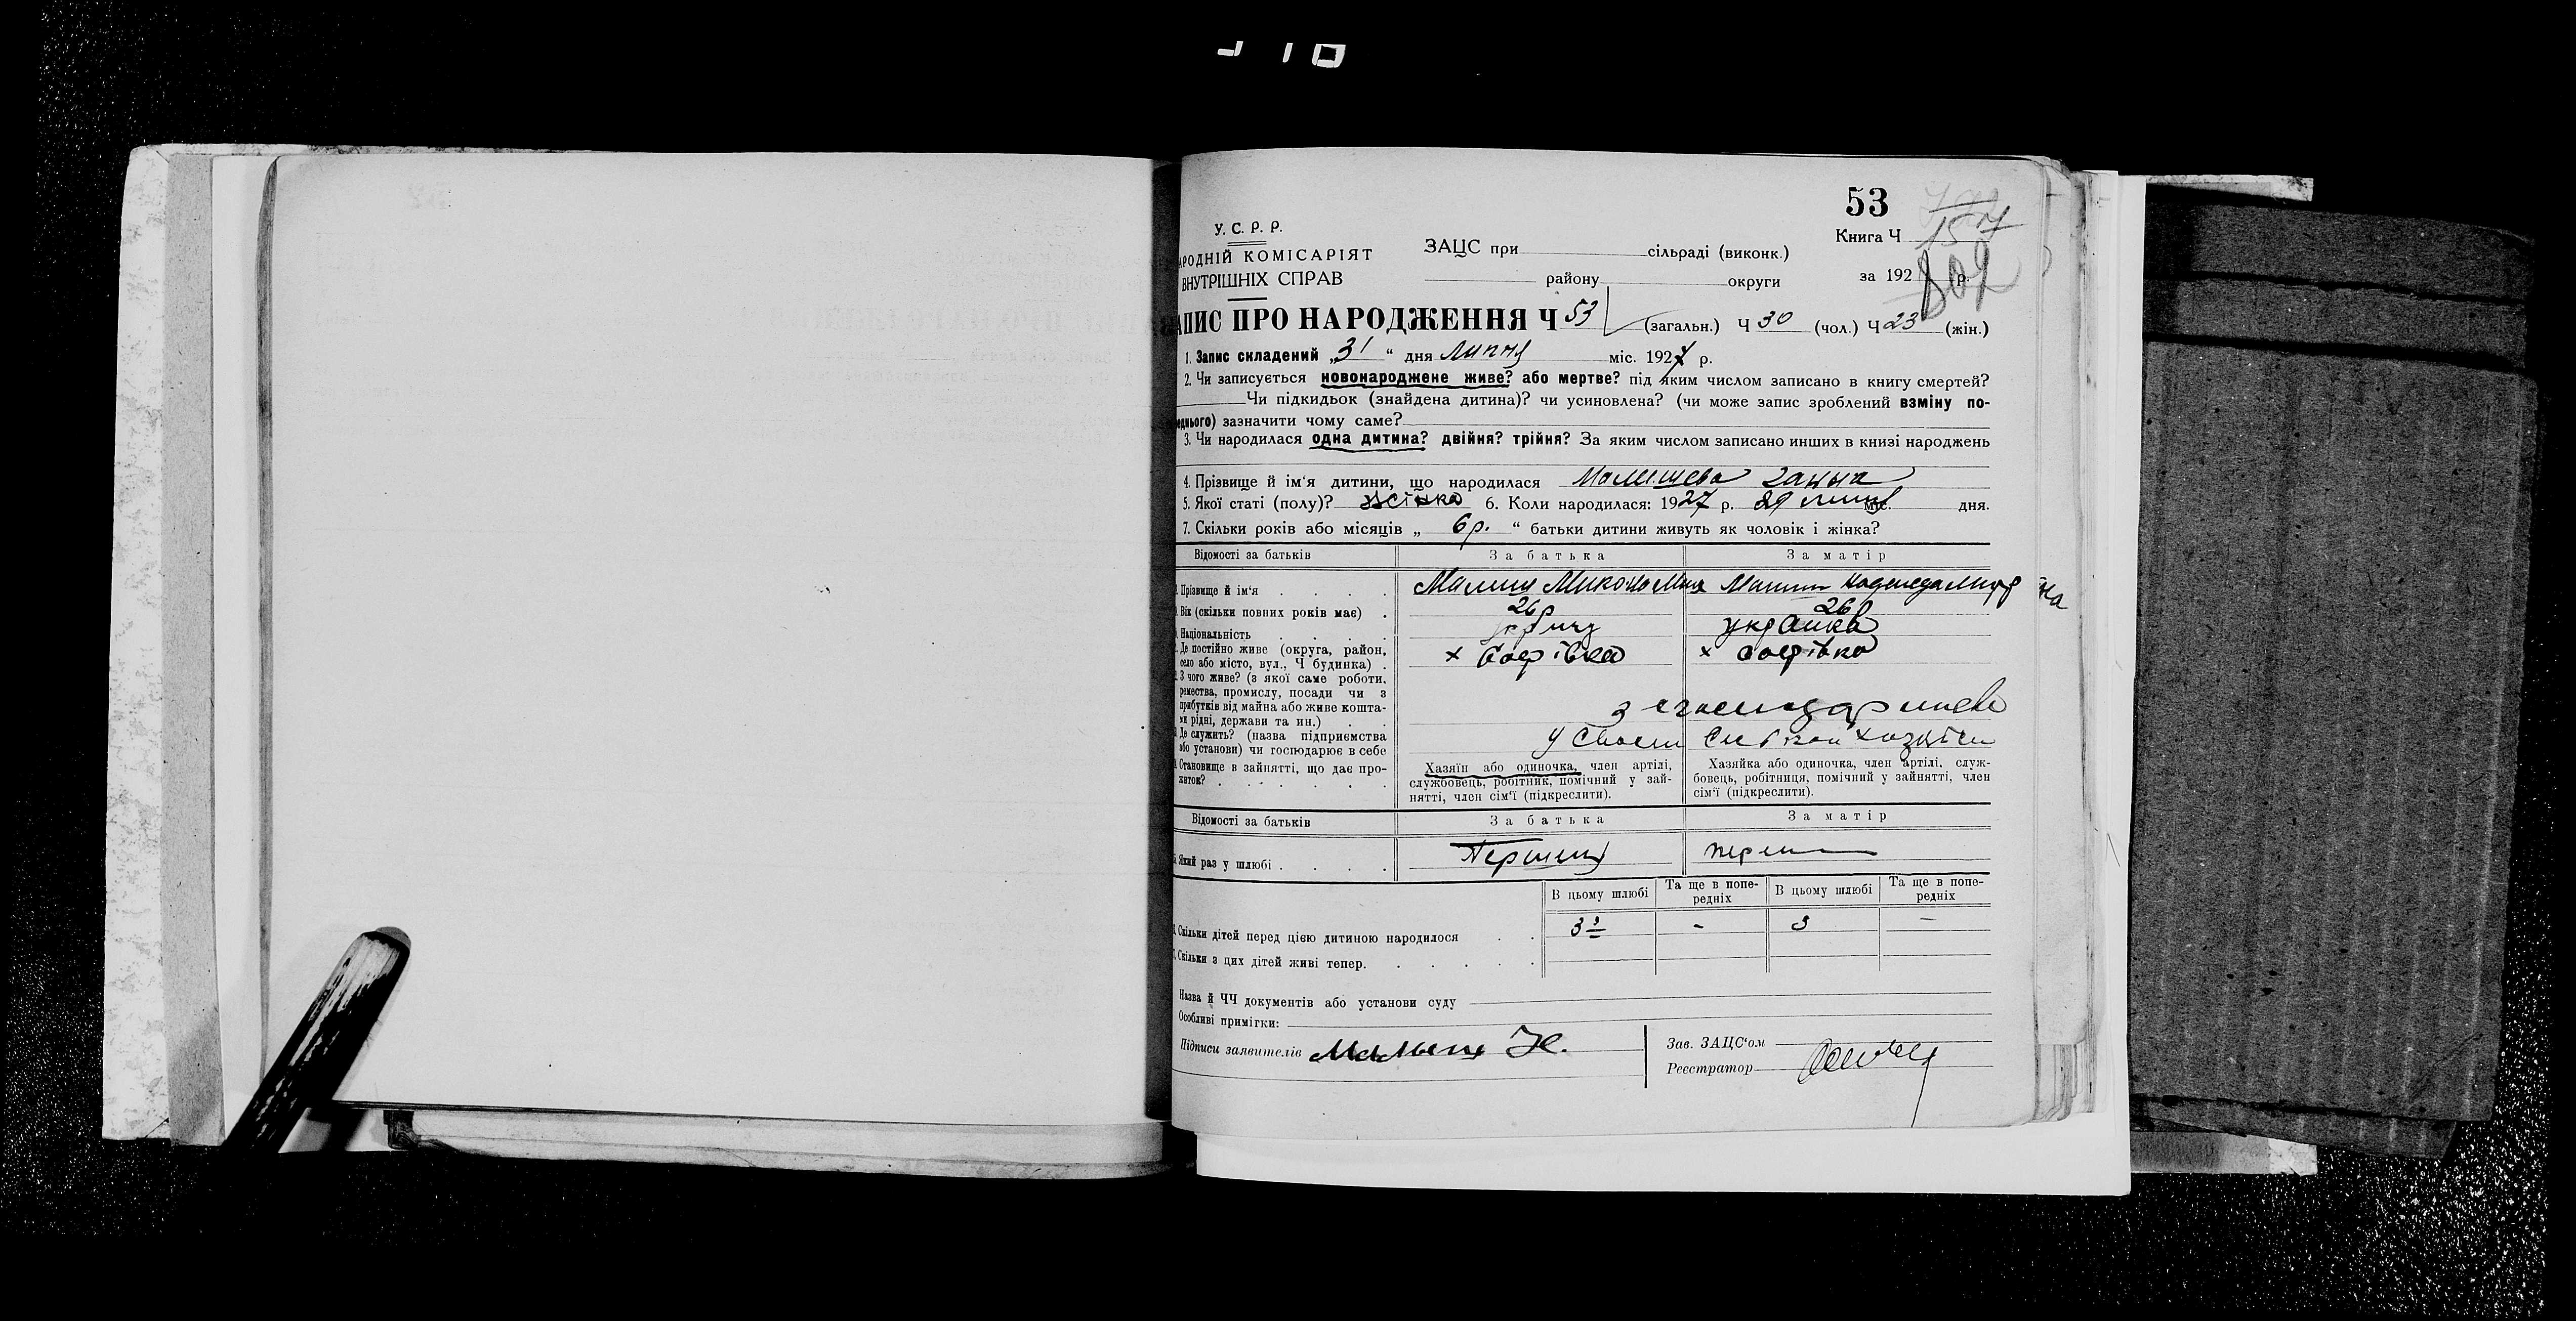 53
У. С. Р. Р.
АРОДНІЙ КОМІСАРІЯТ
ВНУТРІШНІХ СПРАВ
ЗАЦС при сільраді (виконк.)
району округи
Книга Ч
за 192 р.
АПИС ПРО НАРОДЖЕННЯ Ч 53 (загальн.) Ч 30 (чол.) Ч 23 (жін.)
1. Запис складений „31“ дня Липня міс. 1927 р.
2. Чи записується новонароджене живе? або мертве? під яким числом записано в книгу смертей?
Чи підкидьок (знайдена дитина)? чи усиновлена? (чи може запис зроблений взміну по-
еднього) зазначити чому саме?
3. Чи народилася одна дитина? двійня? трійня? За яким числом записано инших в книзі народжень
4. Прізвище й ім‘я дитини, що народилася
5. Якої статі (полу)? жінка 6. Коли народилася: 1927 р. 29 липня міс. дня.
7. Скільки років або місяців „ 6 р. “ батьки дитини живуть як чоловік і жінка?
Відомості за батьків За батька За матір
Прізвище й ім‘я
Вік (скільки повних років має) 26 р 26 р
Національність українка
Де постійно живе (округа, район,
село або місто, вул., Ч будинка) х Софівка х Софівка
З чого живе? (з якої саме роботи,
ремества, промислу, посади чи з
прибутків від майна або живе кошта-
ми рідні, держави та ин.)
Де служить? (назва підприємства
або установи) чи господарює в себе
Становище в зайнятті, що дає про-
житок?
Хазяїн або одиночка, член артілі,
службовець, робітник, помічний у зай-
нятті, член сім‘ї (підкреслити).
Хазяйка або одиночка, член артілі, служ-
бовець, робітниця, помічний у зайнятті, член
сім‘ї (підкреслити).
Відомості за батьків За батька За матір
Який раз у шлюбі
В цьому шлюбі Та ще в попе-
редніх В цьому шлюбі Та ще в попе-
редніх
Скільки дітей перед цією дитиною народилося 3 - 3 -
Скільки з цих дітей живі тепер.
Назва й ЧЧ документів або установи суду
Особливі примітки:
Підписи заявителів
Зав. ЗАЦС‘ом
Реєстратор